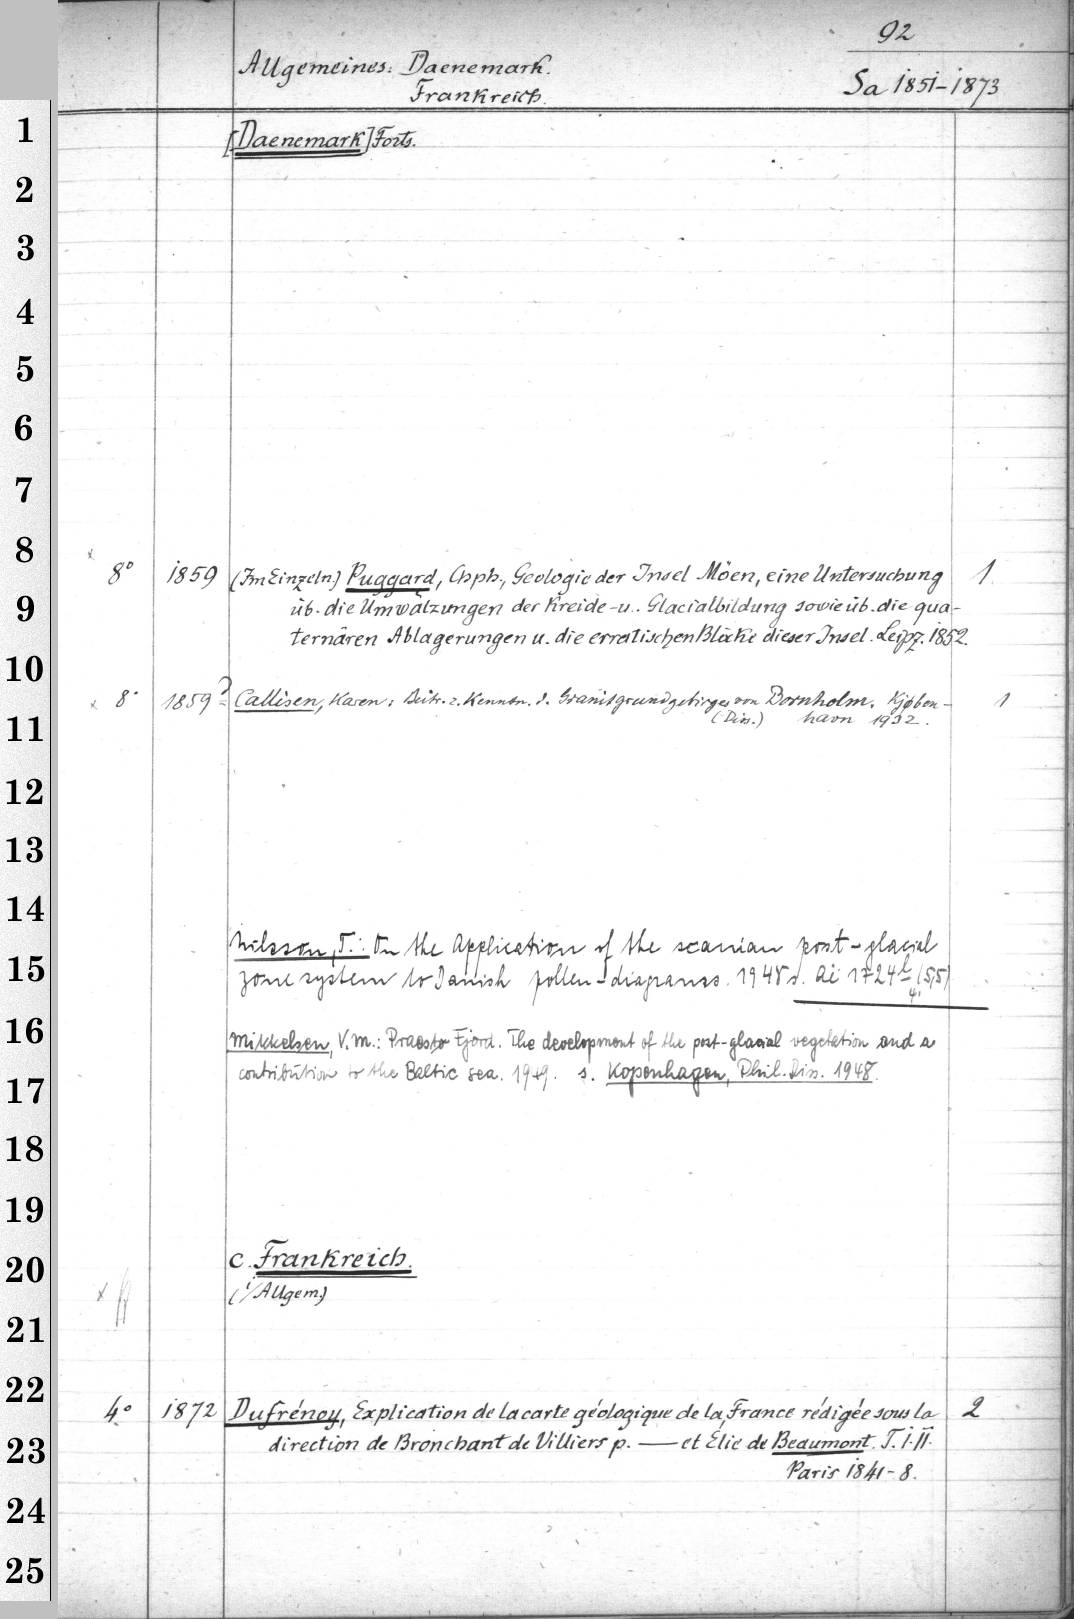 92
Allgemeines: Daenemark.
Frankreich.
Sa 1851-1873
1
[Daenemark] Forts.
2
3
4
5
6
7
8
8° 1859 (Im Einzeln.) Puggard, Chph., Geologie der Insel Möen, eine Untersuchung 1
9
üb. die Umwälzungen der Kreide- u. Glacialbildung sowie üb. die qua-
ternären Ablagerungen u. die erratischen Blöcke dieser Insel. Leipz. 1852.
10
8° 1859? Callisen, Karen: Beitr. z. Kenntn. d. Granitgrundgebirges von Bornholm. Kjöben- 1
11
(Diss.) havn 1932.
12
13
14
Nilsson, T.: On the Application of the scanian post-glacial
15
zone system to Danish pollen-diagrams. 1948 s. Ai 1724 (5,5)
4°
16
Mikkelsen, V. M.: Praesto Fjord. The development of the post-glacial vegetation and a
contribution to the Baltic sea. 1949. s. Kopenhagen, Phil. Diss. 1948.
17
18
19
c. Frankreich.
20
(1/ Allgem.)
21
22
4° 1872 Dufrénoy, Explication de la carte géologique de la France rédigée sous la 2
23
direction de Bronchant de Villiers p. — et Elie de Beaumont. T. I. II.
Paris 1841-8.
24
25